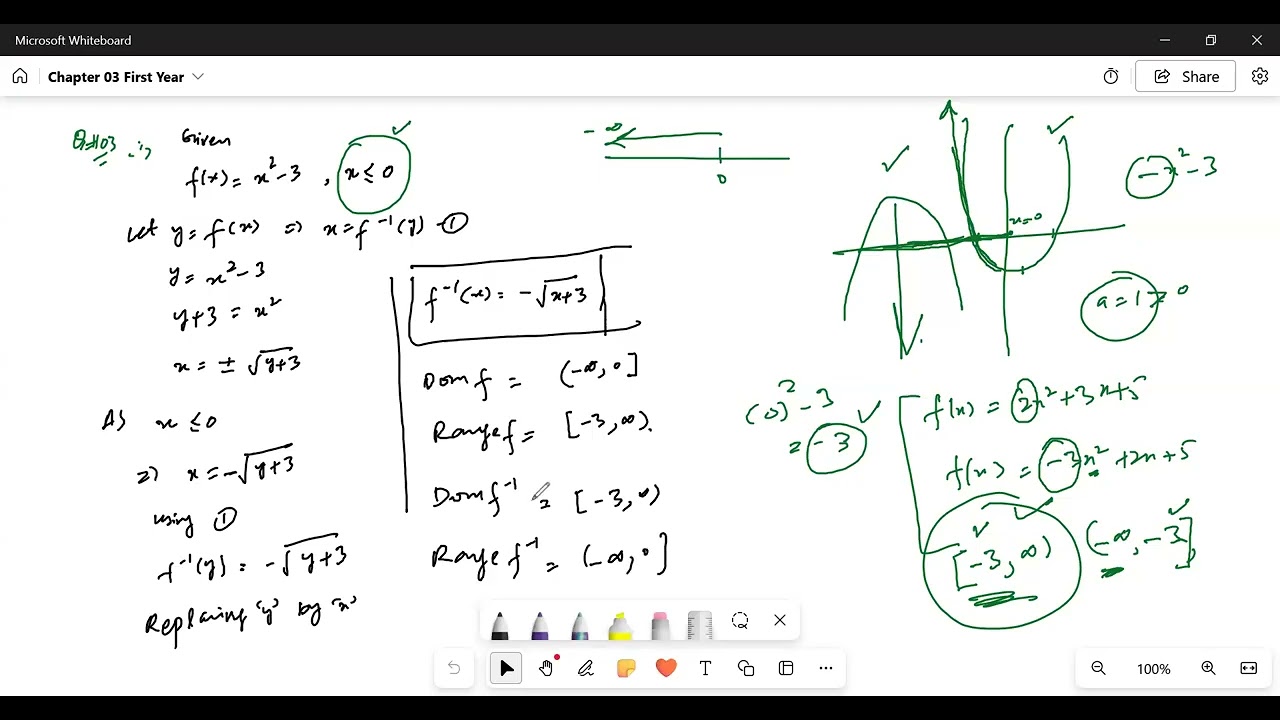 Microsoft Whiteboard
Chapter 03 First Year
Share
Q#03 :>
Given
f(x) = x² - 3 , x ≤ 0
Let y = f(x) => x = f⁻¹(y) - ①
y = x² - 3
y + 3 = x²
x = ± √y+3
As x ≤ 0
=> x = -√y+3
using ①
f⁻¹(y) = -√y+3
Replacing 'y' by 'x'
f⁻¹(x) = -√x+3
Dom f = (-∞, 0]
Range f = [-3, ∞).
Dom f⁻¹ = [-3, ∞)
Range f⁻¹ = (-∞, 0]
-∞
0
x=0
-x² - 3
a = 1 > 0
(0)² - 3
= -3
f(x) = 2x² + 3x + 5
f(x) = -3x² + 2x + 5
[-3, ∞) (-∞, -3]
T
100%